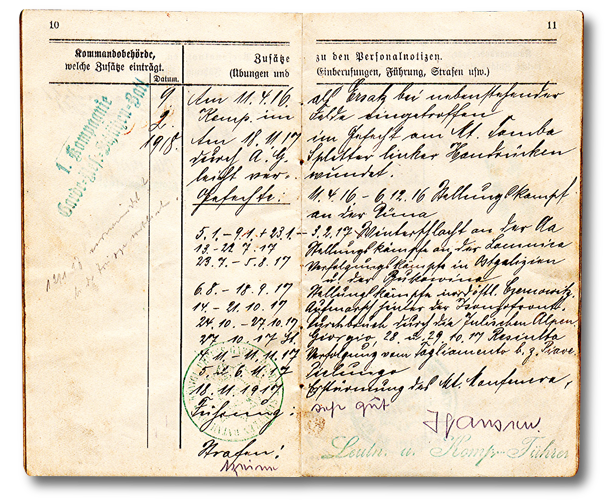 10
11
Kommandobehörde,
welche Zusätze einträgt.
Datum.
Zusätze zu den Personalnotizen.
(Übungen und Einberufungen, Führung, Strafen usw.)
1. Kompagnie
9.
2.
1918.
Am 11.4.16. als Ersatz bei nebenstehender
Komp. im Felde eingetroffen
Am 18.11.17 im Gefecht am Mt. Tomba
durch A.G. Splitter linker Handrücken
leicht verwundet.
Gefechte: 11.4.16 - 6.12.16 Stellungskampf
an der Düna
5.1. - 9.1. + 23.1 - 3.2.17 Winterschlacht an der Aa
13. - 22.7.17 Stellungskämpfe an der Lomnica
23.7. - 5.8.17 Verfolgungskämpfe in Ostgalizien
u. der Bukowina
6.8. - 18.9.17 Stellungskämpfe nordöstl. Czernowitz
14. - 21.10.17 Aufmarsch hinter der Isonzofront.
24.10. - 27.10.17 Durchbruch durch die Julischen Alpen
27.10.17 St. Giorgio, 28. u. 29.10.17 Resiutta
11.11.17 Verfolgung vom Tagliamento b. z. Piave.
6.11.17
18.11.1917 Erstürmung des Mt.
Führung: sehr gut
Leutn. u. Komp.-Führer
Strafen:
keine